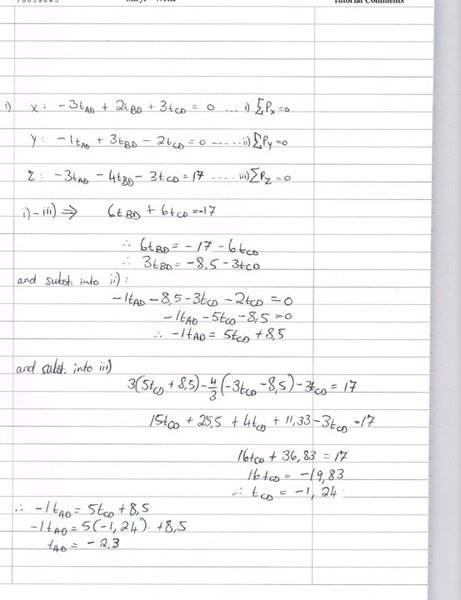 Tutorial Comments
i) x: -3tAD + 2tBD + 3tCD = 0 ... i) ΣPx=0
y: -1tAD + 3tBD - 2tCD = 0 ..... ii) ΣPy=0
z: -3tAD - 4tBD - 3tCD = 17 ..... iii) ΣPz = 0
i)-iii) ⇒ 6tBD + 6tCD = -17
∴ 6tBD = -17 - 6tCD
∴ 3tBD = -8,5 - 3tCD
and subst. into ii):
-1tAD - 8,5 - 3tCD - 2tCD = 0
-1tAD - 5tCD - 8,5 = 0
∴ -1tAD = 5tCD + 8,5
and subst. into iii)
3(5tCD + 8,5) - 4/3(-3tCD - 8,5) - 3tCD = 17
15tCD + 25,5 + 4tCD + 11,33 - 3tCD = 17
16tCD + 36,83 = 17
16tCD = -19,83
∴ tCD = -1,24
∴ -1tAD = 5tCD + 8,5
-1tAD = 5(-1,24) + 8,5
tAD = -2,3